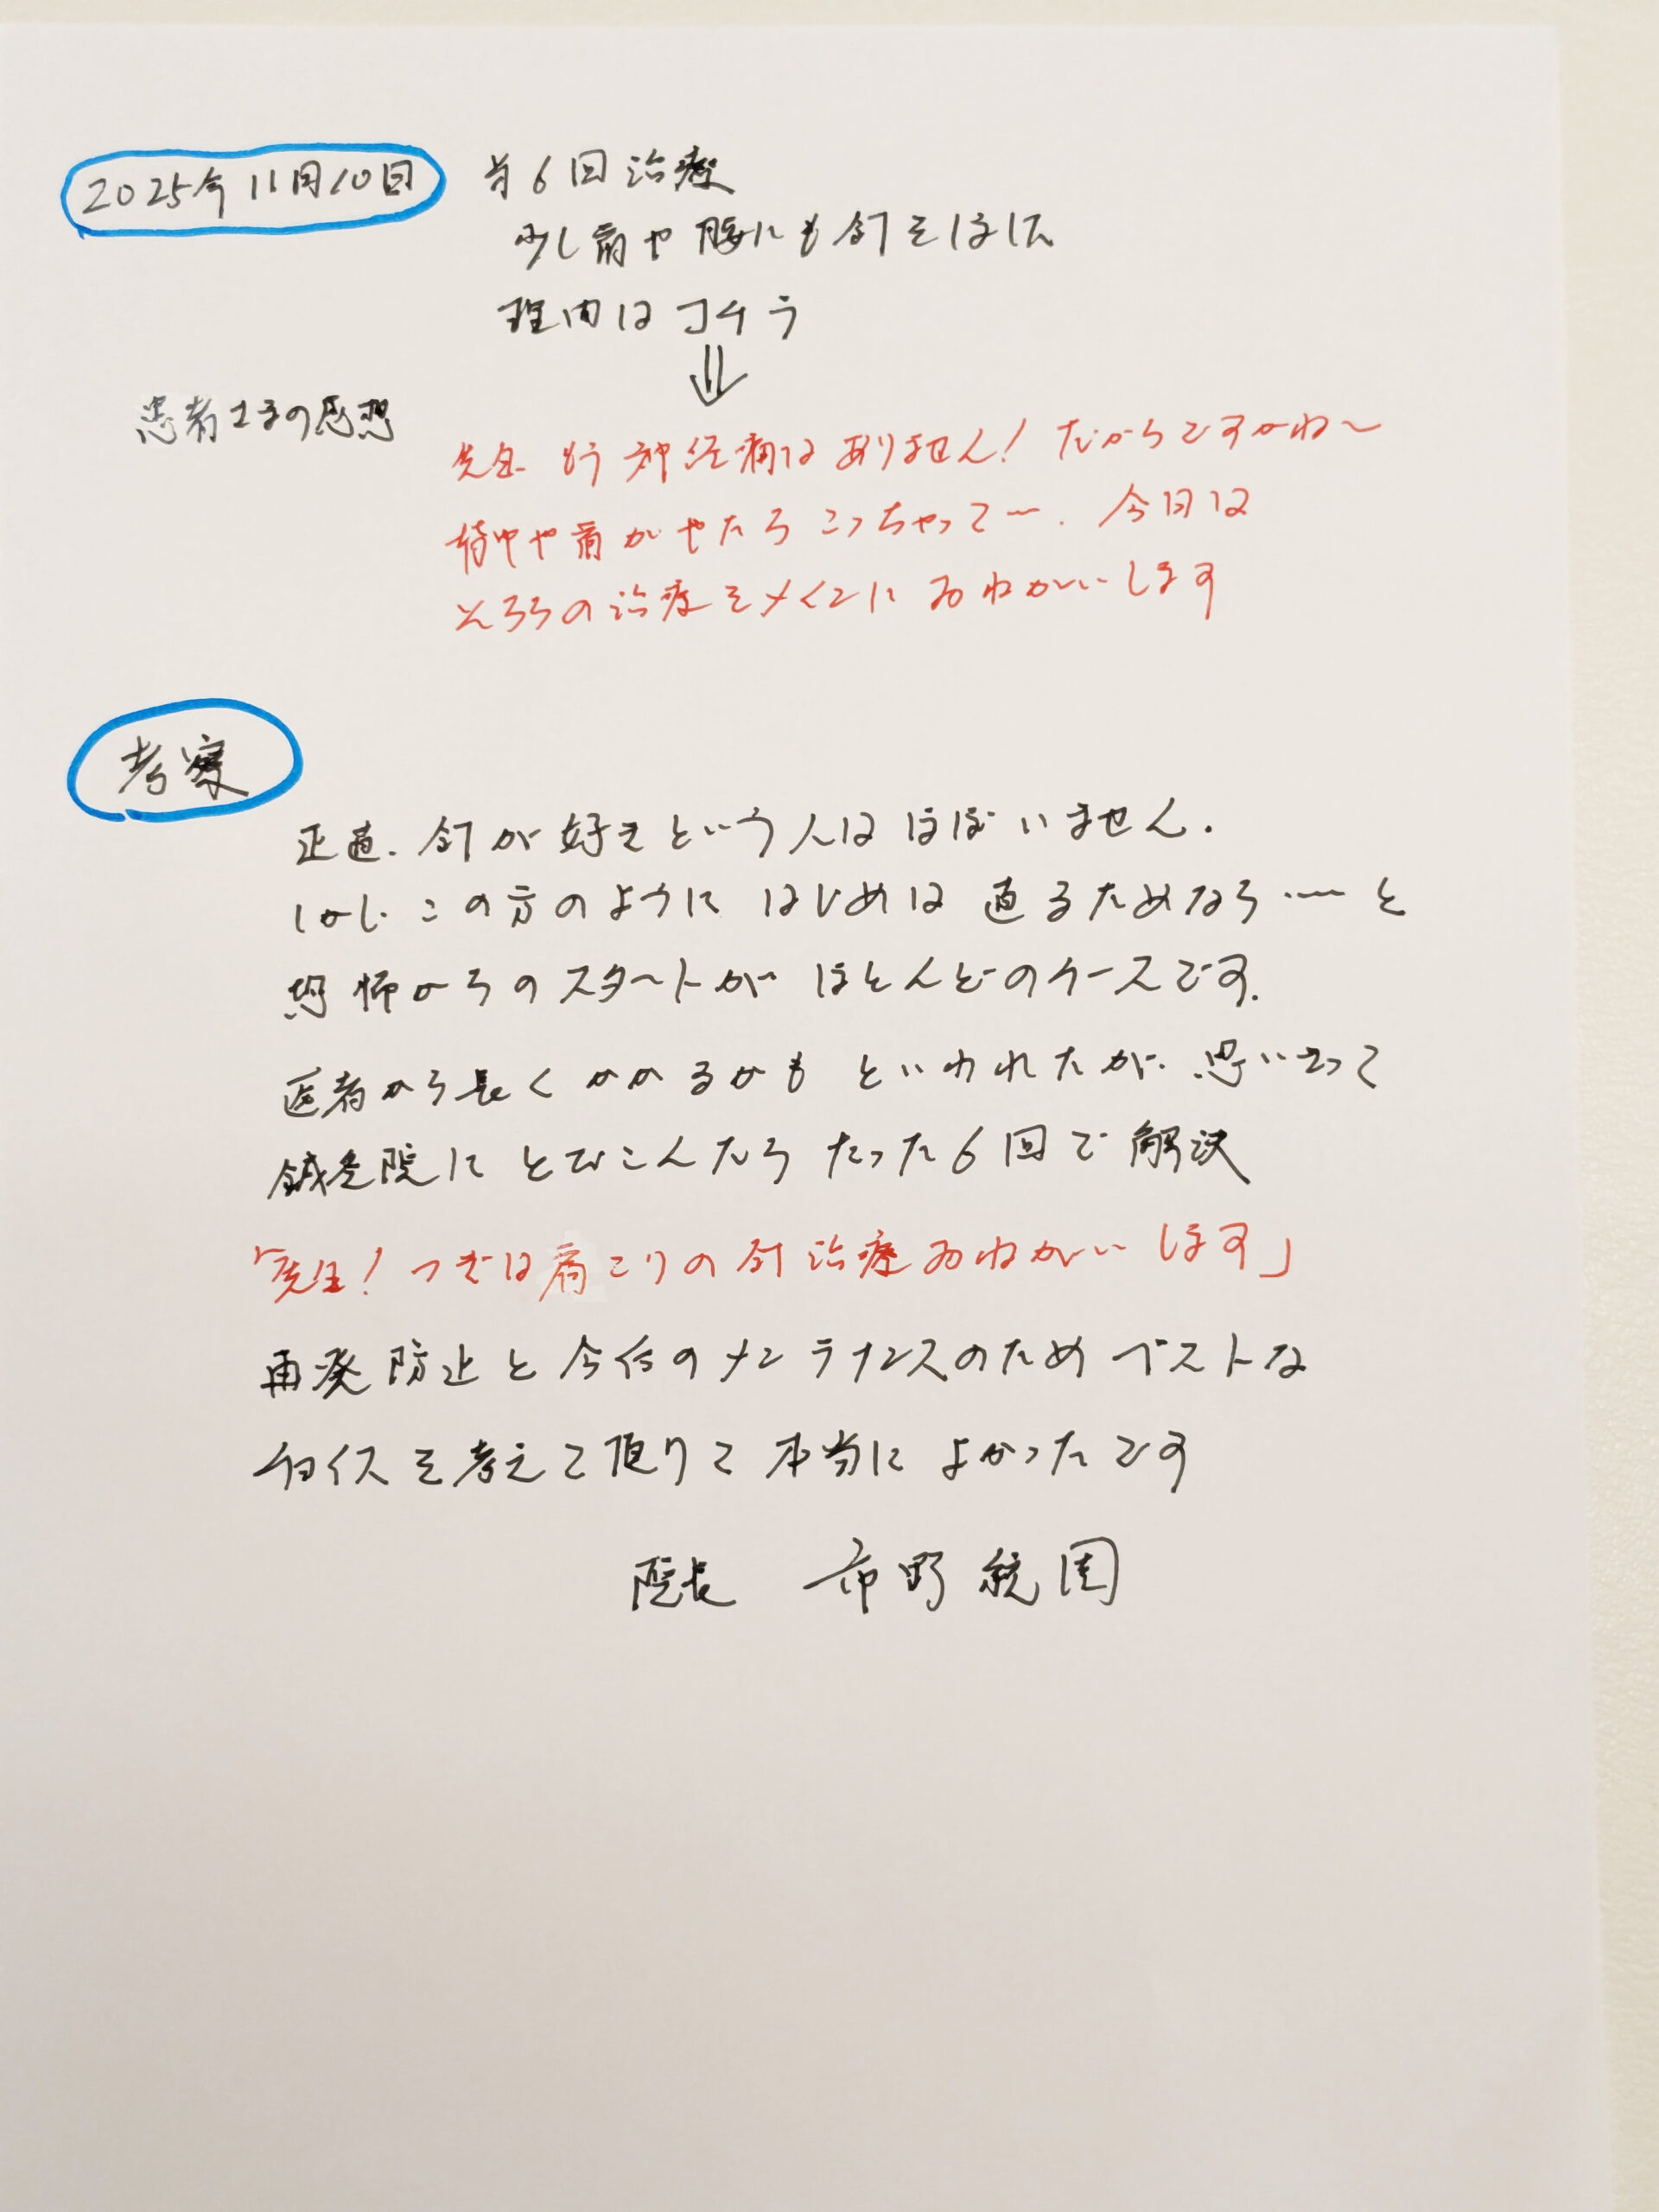 2025年11月10日 第6回治療
少し肩や腰にも針をほどこした
理由はコチラ
患者さまの感想
先生 もう神経痛はありません! だからですかね〜
背中や肩がやたらこっちゃって〜. 今日は
そちらの治療をメインにおねがいします
考察
正直、針が好きという人はほぼいません.
しかし、この方のようにはじめは直るためなら……と
恐怖からのスタートがほとんどのケースです.
医者から長くかかるかもといわれたが、思い立って
鍼灸院にとびこんだら たった6回で解決
「先生! つぎは肩こりの針治療おねがいします」
再発防止と今後のメンテナンスのためベストな
チョイスを考えて頂けて本当によかったです
院長 市野 統